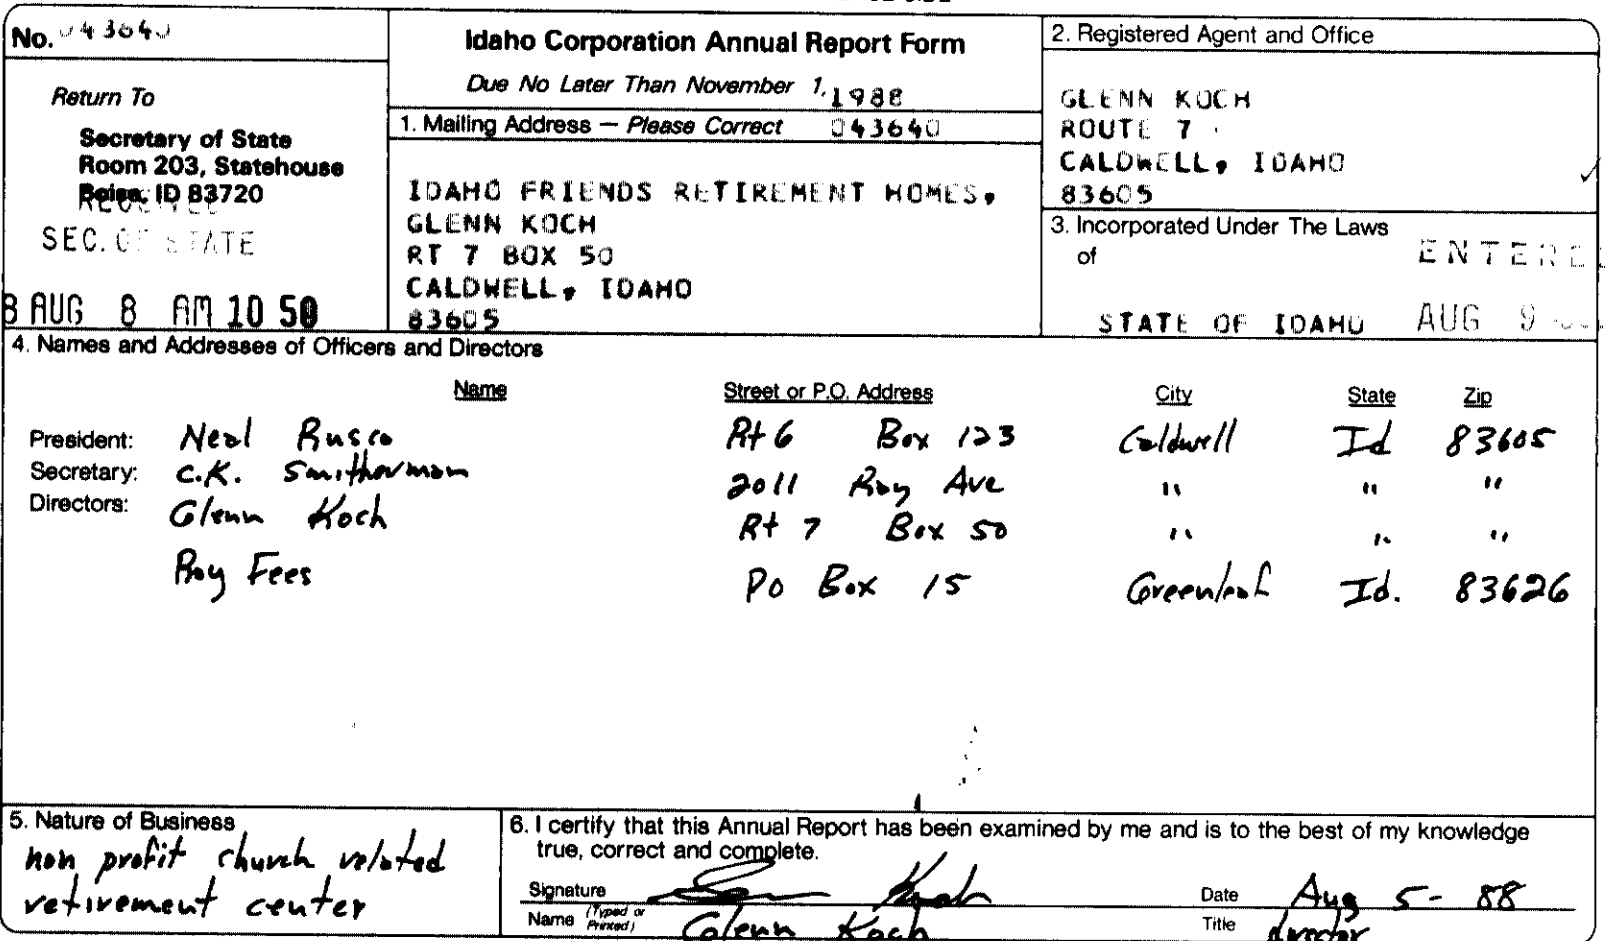 No. 043640
Idaho Corporation Annual Report Form
Due No Later Than November 1, 1988
Return To
Secretary of State
Room 203, Statehouse
Boise, ID 83720
RECEIVED
SEC. OF STATE
8 AUG 8 AM 10 50
1. Mailing Address — Please Correct 043640
IDAHO FRIENDS RETIREMENT HOMES,
GLENN KOCH
RT 7 BOX 50
CALDWELL, IDAHO
83605
2. Registered Agent and Office
GLENN KOCH
ROUTE 7
CALDWELL, IDAHO
83605
3. Incorporated Under The Laws
of
STATE OF IDAHO
ENTERE
AUG 9
4. Names and Addresses of Officers and Directors
Name Street or P.O. Address City State Zip
President: Neal Rusco Rt 6 Box 123 Caldwell Id 83605
Secretary: C.K. Smitherman 2011 Ray Ave " " "
Directors: Glenn Koch Rt 7 Box 50 " " "
Roy Fees Po Box 15 Greenleaf Id. 83626
5. Nature of Business
non profit church related
retirement center
6. I certify that this Annual Report has been examined by me and is to the best of my knowledge
true, correct and complete.
Signature Glenn Koch Date Aug 5- 88
Name (Typed or Printed) Glenn Koch Title director